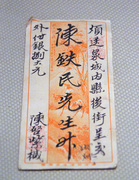 煩送泉城內縣後街呈交
陳鉄民先生升
外付銀捌大元
陳緘